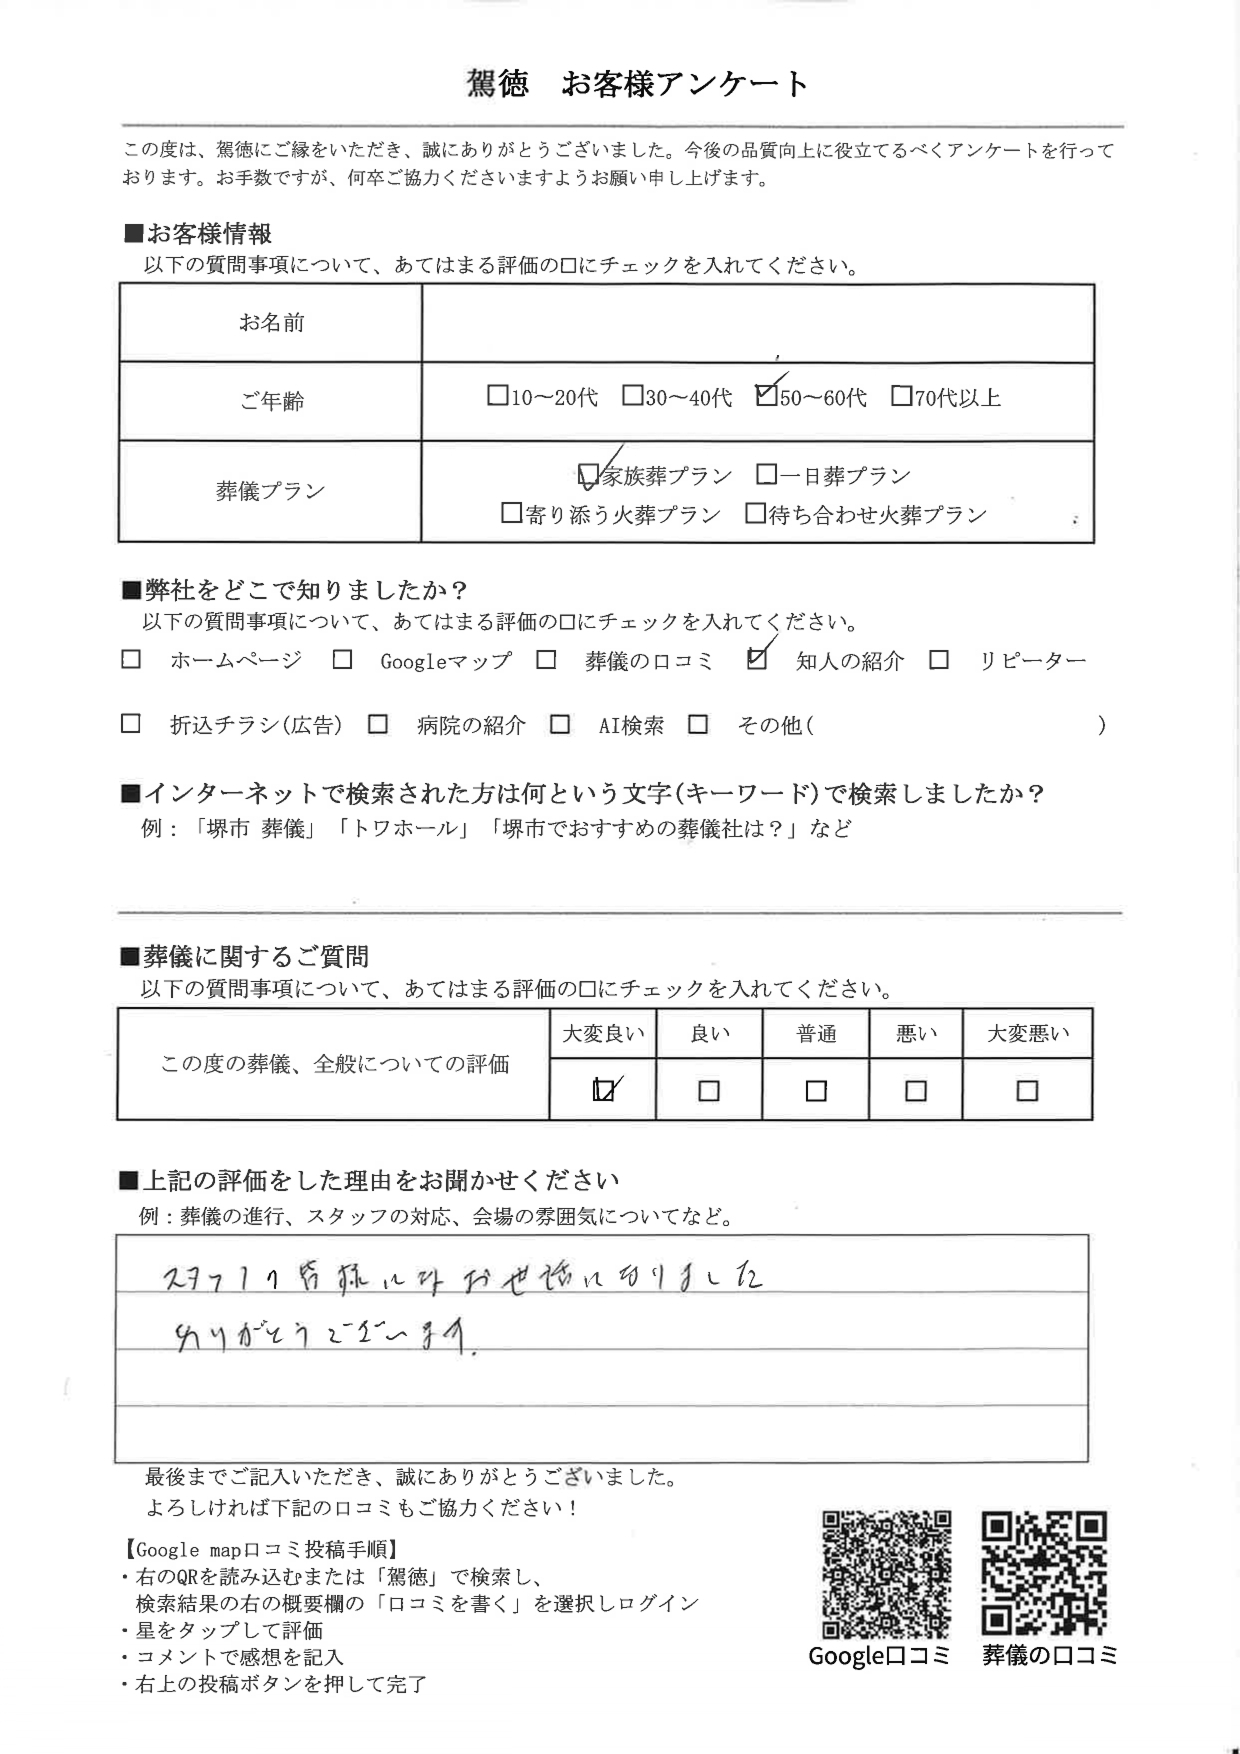 駕徳 お客様アンケート
この度は、駕徳にご縁をいただき、誠にありがとうございました。今後の品質向上に役立てるべくアンケートを行って
おります。お手数ですが、何卒ご協力くださいますようお願い申し上げます。
■お客様情報
以下の質問事項について、あてはまる評価の口にチェックを入れてください。
お名前
ご年齢 □10〜20代 □30〜40代 ☑50〜60代 □70代以上
葬儀プラン ☑家族葬プラン □一日葬プラン
□寄り添う火葬プラン □待ち合わせ火葬プラン
■弊社をどこで知りましたか？
以下の質問事項について、あてはまる評価の口にチェックを入れてください。
□ ホームページ □ Googleマップ □ 葬儀の口コミ ☑ 知人の紹介 □ リピーター
□ 折込チラシ(広告) □ 病院の紹介 □ AI検索 □ その他( )
■インターネットで検索された方は何という文字(キーワード)で検索しましたか？
例：「堺市 葬儀」「トワホール」「堺市でおすすめの葬儀社は？」など
■葬儀に関するご質問
以下の質問事項について、あてはまる評価の口にチェックを入れてください。
この度の葬儀、全般についての評価 大変良い 良い 普通 悪い 大変悪い
☑ □ □ □ □
■上記の評価をした理由をお聞かせください
例：葬儀の進行、スタッフの対応、会場の雰囲気についてなど。
スタッフの皆様には お世話になりました
ありがとうございます.
最後までご記入いただき、誠にありがとうございました。
よろしければ下記の口コミもご協力ください！
【Google map口コミ投稿手順】
・右のQRを読み込むまたは「駕徳」で検索し、
検索結果の右の概要欄の「口コミを書く」を選択しログイン
・星をタップして評価
・コメントで感想を記入
・右上の投稿ボタンを押して完了
Google口コミ 葬儀の口コミ